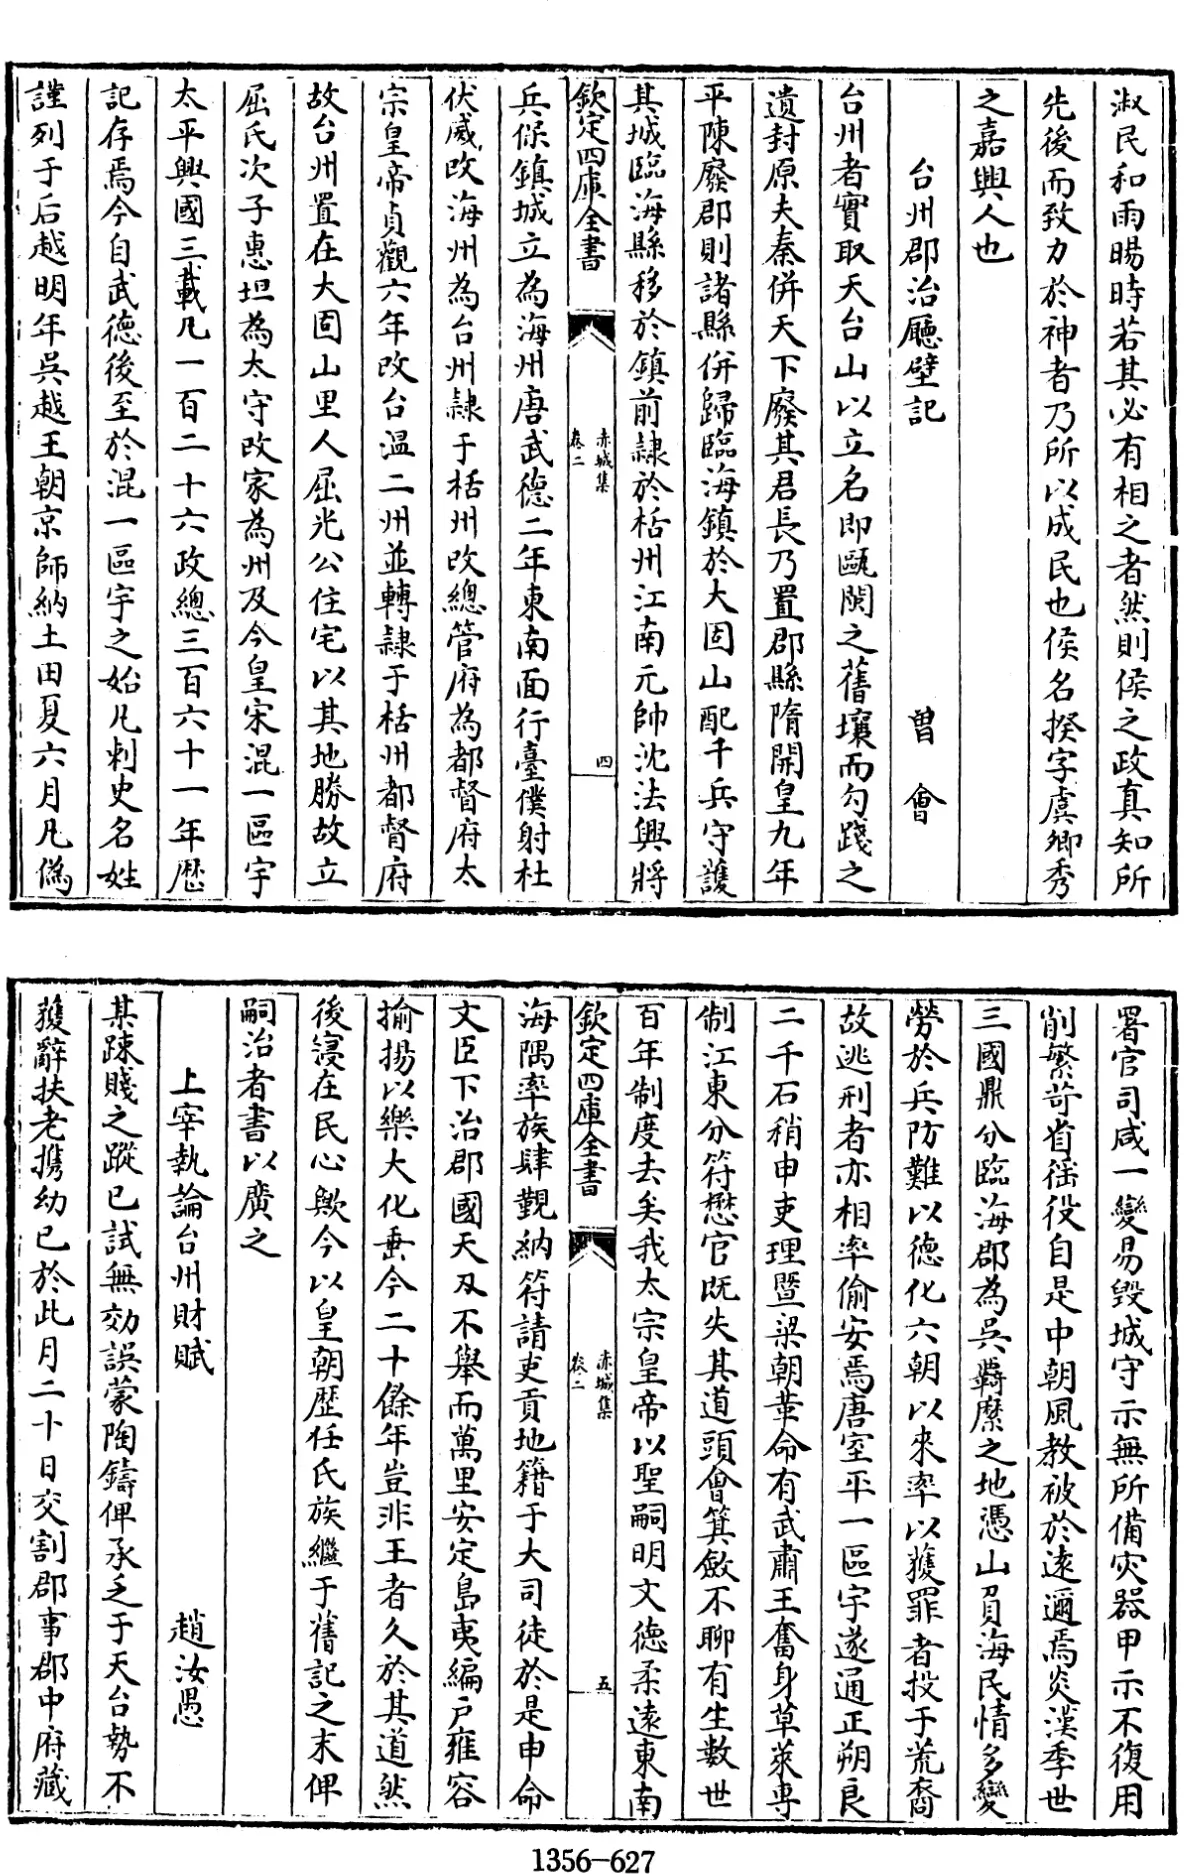 淑民和雨暘時若其必有相之者然則侯之政真知所
先後而致力於神者乃所以成民也侯名揆字虞卿秀
之嘉興人也
台州郡治廳壁記 曾會
台州者實取天台山以立名即甌閩之舊壤而勾踐之
遺封原夫秦併天下廢其君長乃置郡縣隋開皇九年
平陳廢郡則諸縣併歸臨海鎮於大固山配千兵守護
其城臨海縣移於鎮前隷於栝州江南元帥沈法興將
欽定四庫全書 赤城集 卷二 四
兵保鎮城立為海州唐武德二年東南面行臺僕射杜
伏威改海州為台州隷于栝州改總管府為都督府太
宗皇帝貞觀六年改台溫二州並轉隷于栝州都督府
故台州置在大固山里人屈光公住宅以其地勝故立
屈氏次子惠坦為太守改家為州及今皇宋混一區宇
太平興國三載凡一百二十六政總三百六十一年歷
記存焉今自武德後至於混一區宇之始凡刺史名姓
謹列于后越明年吳越王朝京師納土田夏六月凡偽
署官司咸一變易毀城守示無所備灾器甲示不復用
削繁苛省徭役自是中朝風教被於逺邇焉炎漢季世
三國鼎分臨海郡為吳羇縻之地憑山負海民情多變
勞於兵防難以德化六朝以來率以獲罪者投于荒裔
故逃刑者亦相率偷安焉唐室平一區宇遂通正朔良
二千石稍申吏理暨梁朝革命有武肅王奮身草萊專
制江東分符懋官既失其道頭會箕斂不聊有生數世
百年制度去矣我太宗皇帝以聖嗣明文德柔逺東南
欽定四庫全書 赤城集 卷二 五
海隅率族肆覲納符請吏貢地籍于大司徒於是申命
文臣下治郡國天刄不舉而萬里安定島夷編户雍容
揄揚以樂大化垂今二十餘年豈非王者久於其道然
後寖在民心歟今以皇朝歷任氏族繼于舊記之末俾
嗣治者書以廣之
上宰執論台州財賦 趙汝愚
某踈賤之蹤已試無効誤蒙陶鑄俾承乏于天台勢不
獲辭扶老攜幼已於此月二十日交割郡事郡中府藏
1356-627